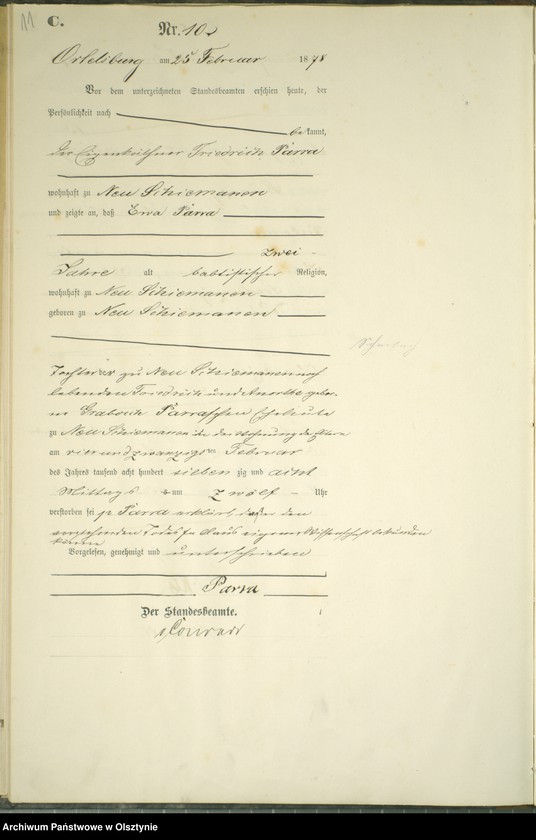 11
C.
Nr. 10
Ortelsburg am 25 Februar 1878
Vor dem unterzeichneten Standesbeamten erschien heute, der
Persönlichkeit nach
bekannt,
der Eigenkäthner Friedrich Parra
wohnhaft zu Neu Schiemanen
und zeigte an, daß Ewa Parra
zwei
Jahre alt babtistischer Religion,
wohnhaft zu Neu Schiemanen
geboren zu Neu Schiemanen
Tochter zu Neu Schiemanen noch
lebenden Friedrich und gebor-
Parraschen Eheleute
zu Neu Schiemanen in der Wohnung der Eltern
am vierundzwanzigsten Februar
des Jahres tausend acht hundert siebenzig und acht
Mittags um zwölf Uhr
verstorben sei Parra erklärt, daß er den
vorstehenden Todesfall aus eigener Wissenschaft bekunden
könne
Vorgelesen, genehmigt und unterschrieben
Parra
Der Standesbeamte.
Conrad
Archiwum Państwowe w Olsztynie